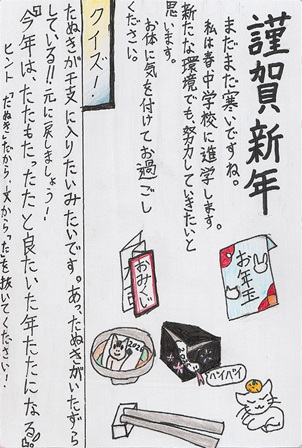 謹賀新年
まだまだ寒いですね。
私は春中学校に進学します。
新たな環境でも、努力していきたいと
思います。
お体に気を付けてお過ごし
ください。
お年玉
おみくじ
バイバイ
クイズ!
たぬきが干支に入りたいみたいです。あっ、たぬきがいたずら
している!!元に戻しましょう!
「今年は、たたもたったたと良たいた年たたになる。」
ヒント「たぬき」だから…文から「た」を抜いてください!